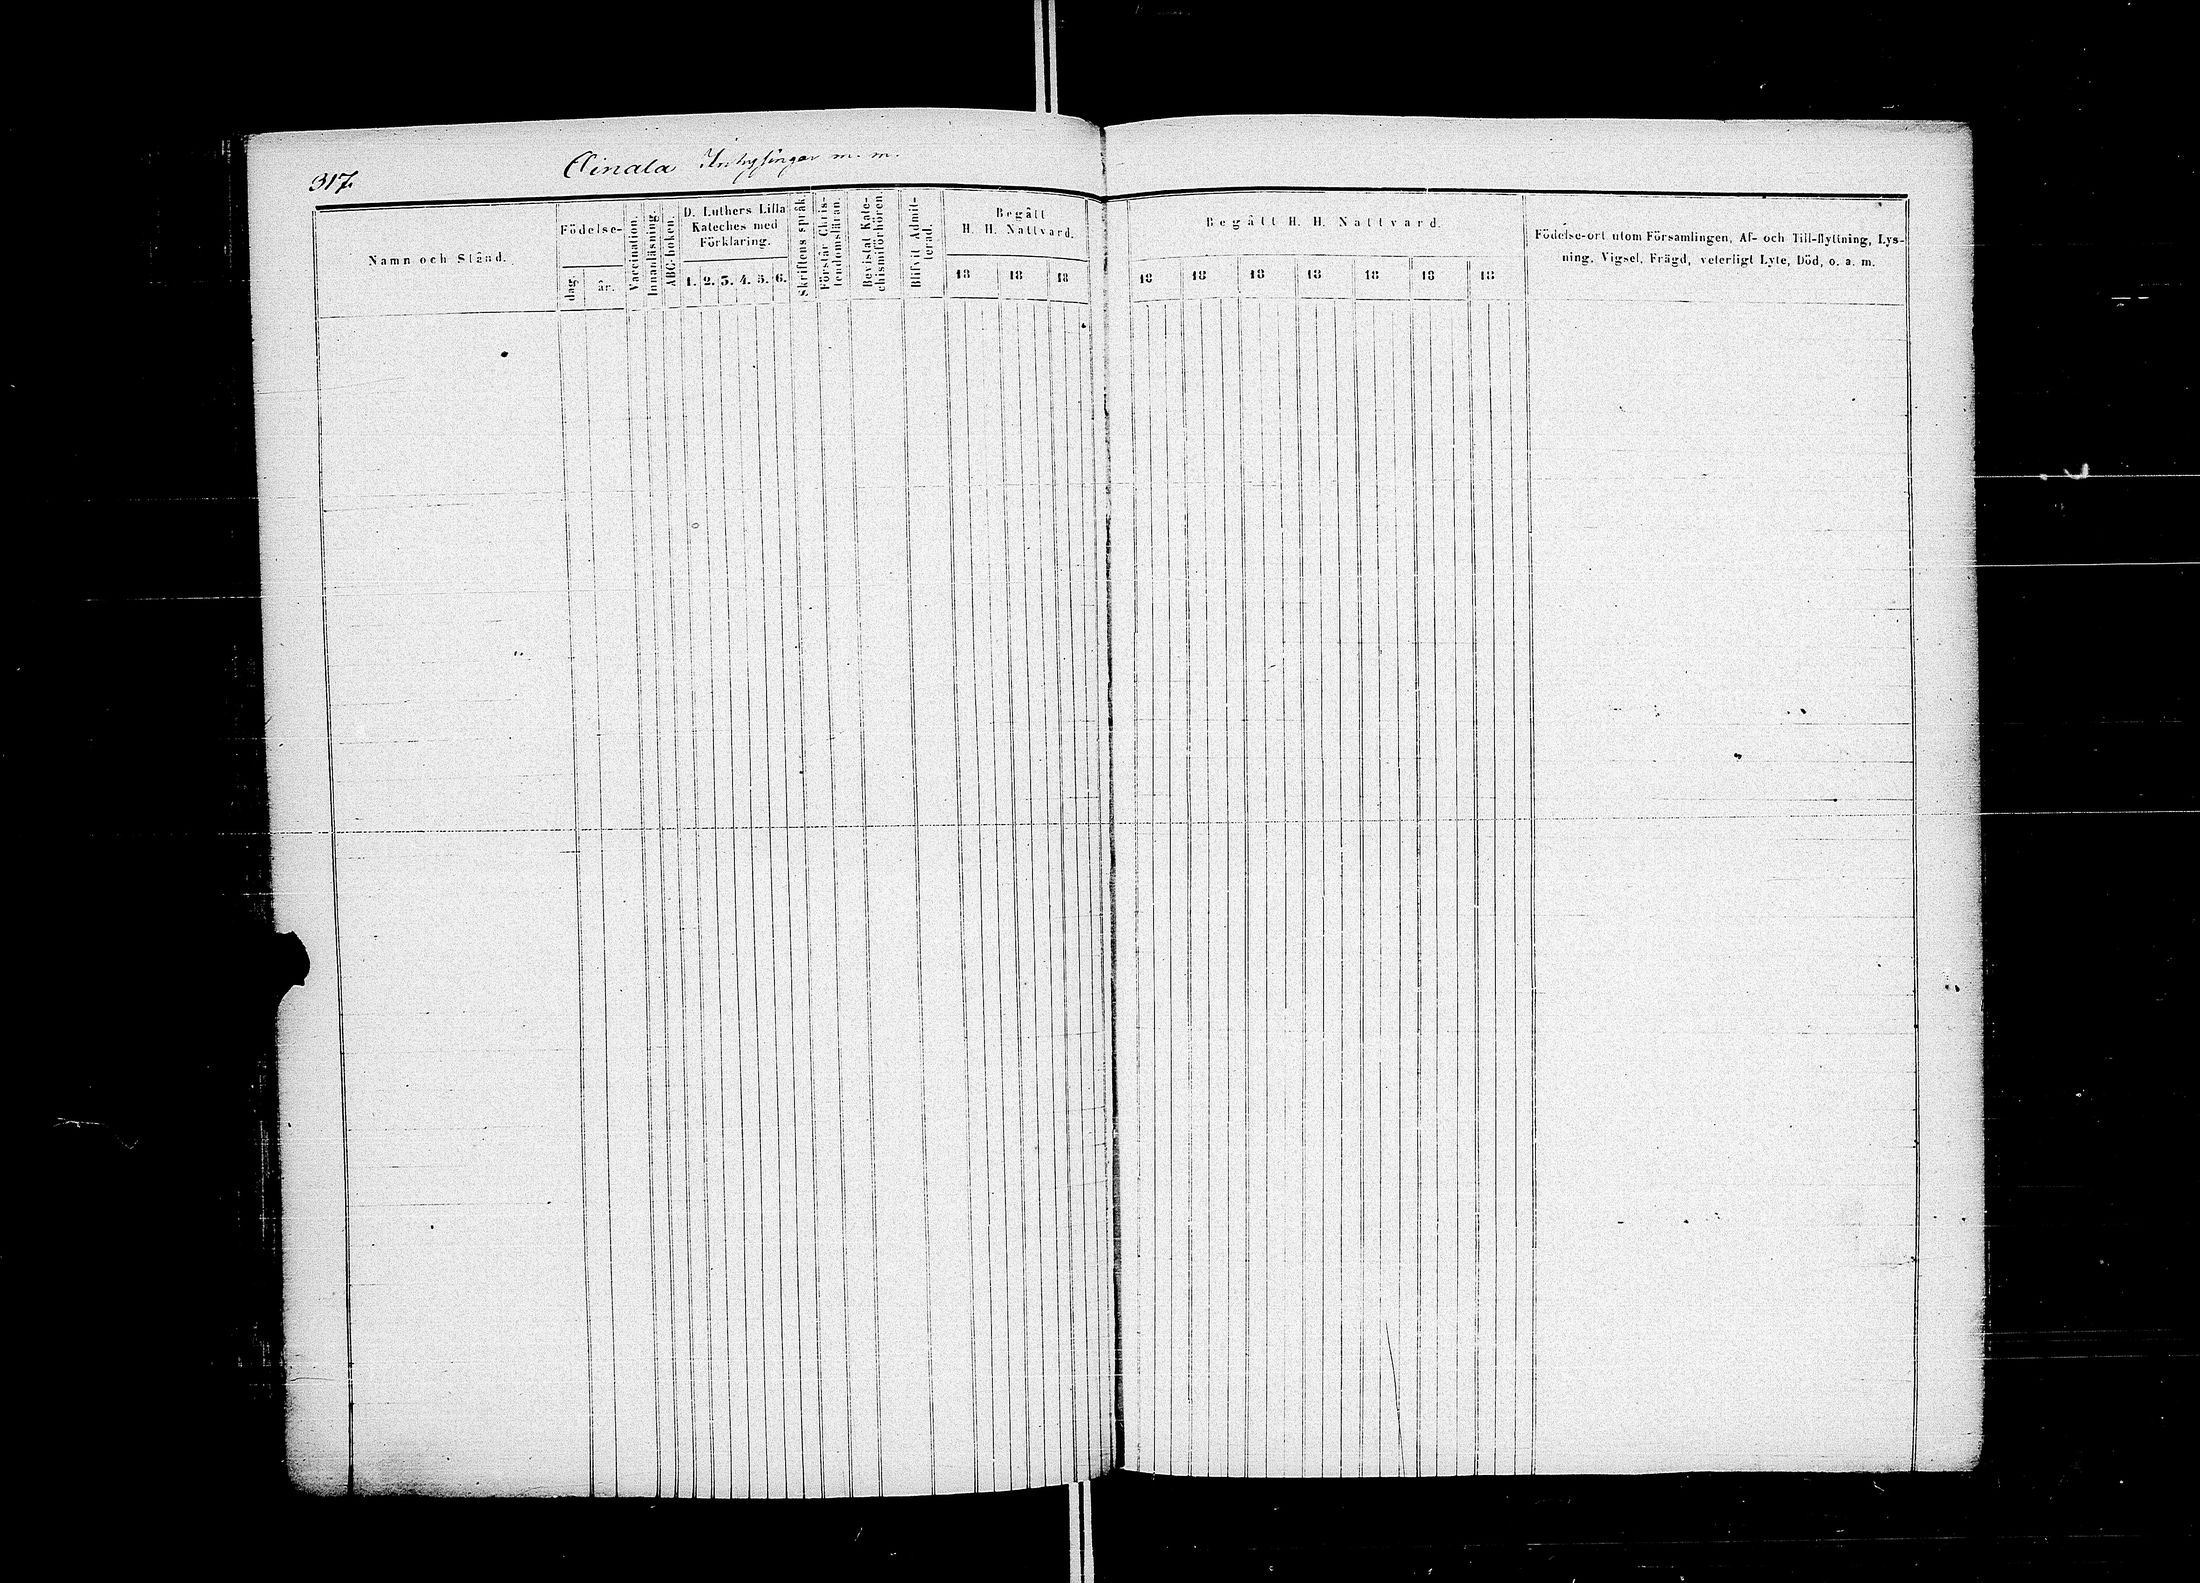 317.
Einala Inhysingar m. m.
Namn och Stånd.
Födelse-
dag.
år.
Vaccination.
Innanläsning.
ABC-boken.
D. Luthers Lilla
Kateches med
Förklaring.
1. 2. 3. 4. 5. 6.
Skriftens språk.
Förstår Chris-
tendomsläran.
Bevistat Kate-
chismiförhören.
Blifvit Admit-
terad.
Begått
H. H. Nattvard.
18 18 18
Begått H. H. Nattvard.
18 18 18 18 18 18 18
Födelse-ort utom Församlingen, Af- och Till-flyttning, Lys-
ning, Vigsel, Frägd, veterligt Lyte, Död, o. a. m.